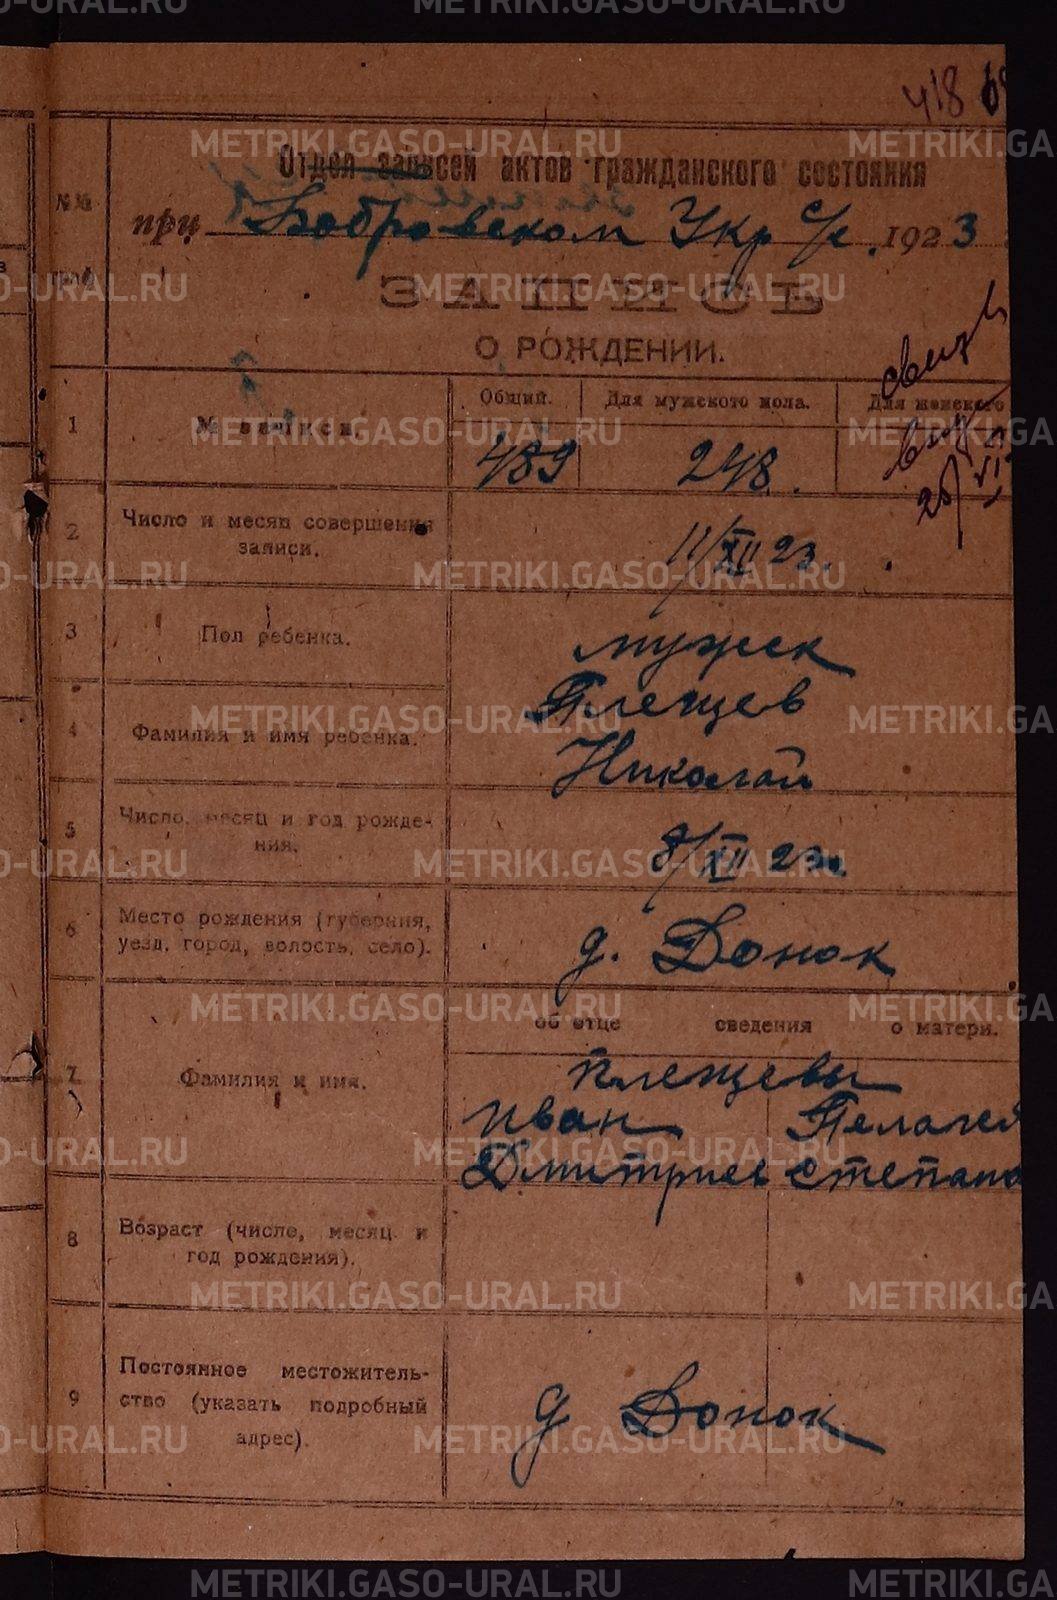 418
Отдел записей актов гражданского состояния
при Бобровском Укр с/с. 1923
ЗАПИСЬ
О РОЖДЕНИИ.
№№ граф
1
№ записи.
Общий. Для мужского пола. Для женского
489 248.
2
Число и месяц совершения
записи.
11/XII 23.
3
Пол ребенка.
мужск
4
Фамилия и имя ребенка.
Плещев
Николай
5
Число, месяц и год рожде-
ния.
8/XII 23г.
6
Место рождения (губерния,
уезд, город, волость, село).
д. Донок
об отце сведения о матери.
7
Фамилия и имя.
Плещевы
Иван Пелагея
Дмитриев Степано
8
Возраст (число, месяц и
год рождения).
9
Постоянное местожитель-
ство (указать подробный
адрес).
д Донок
METRIKI.GASO-URAL.RU